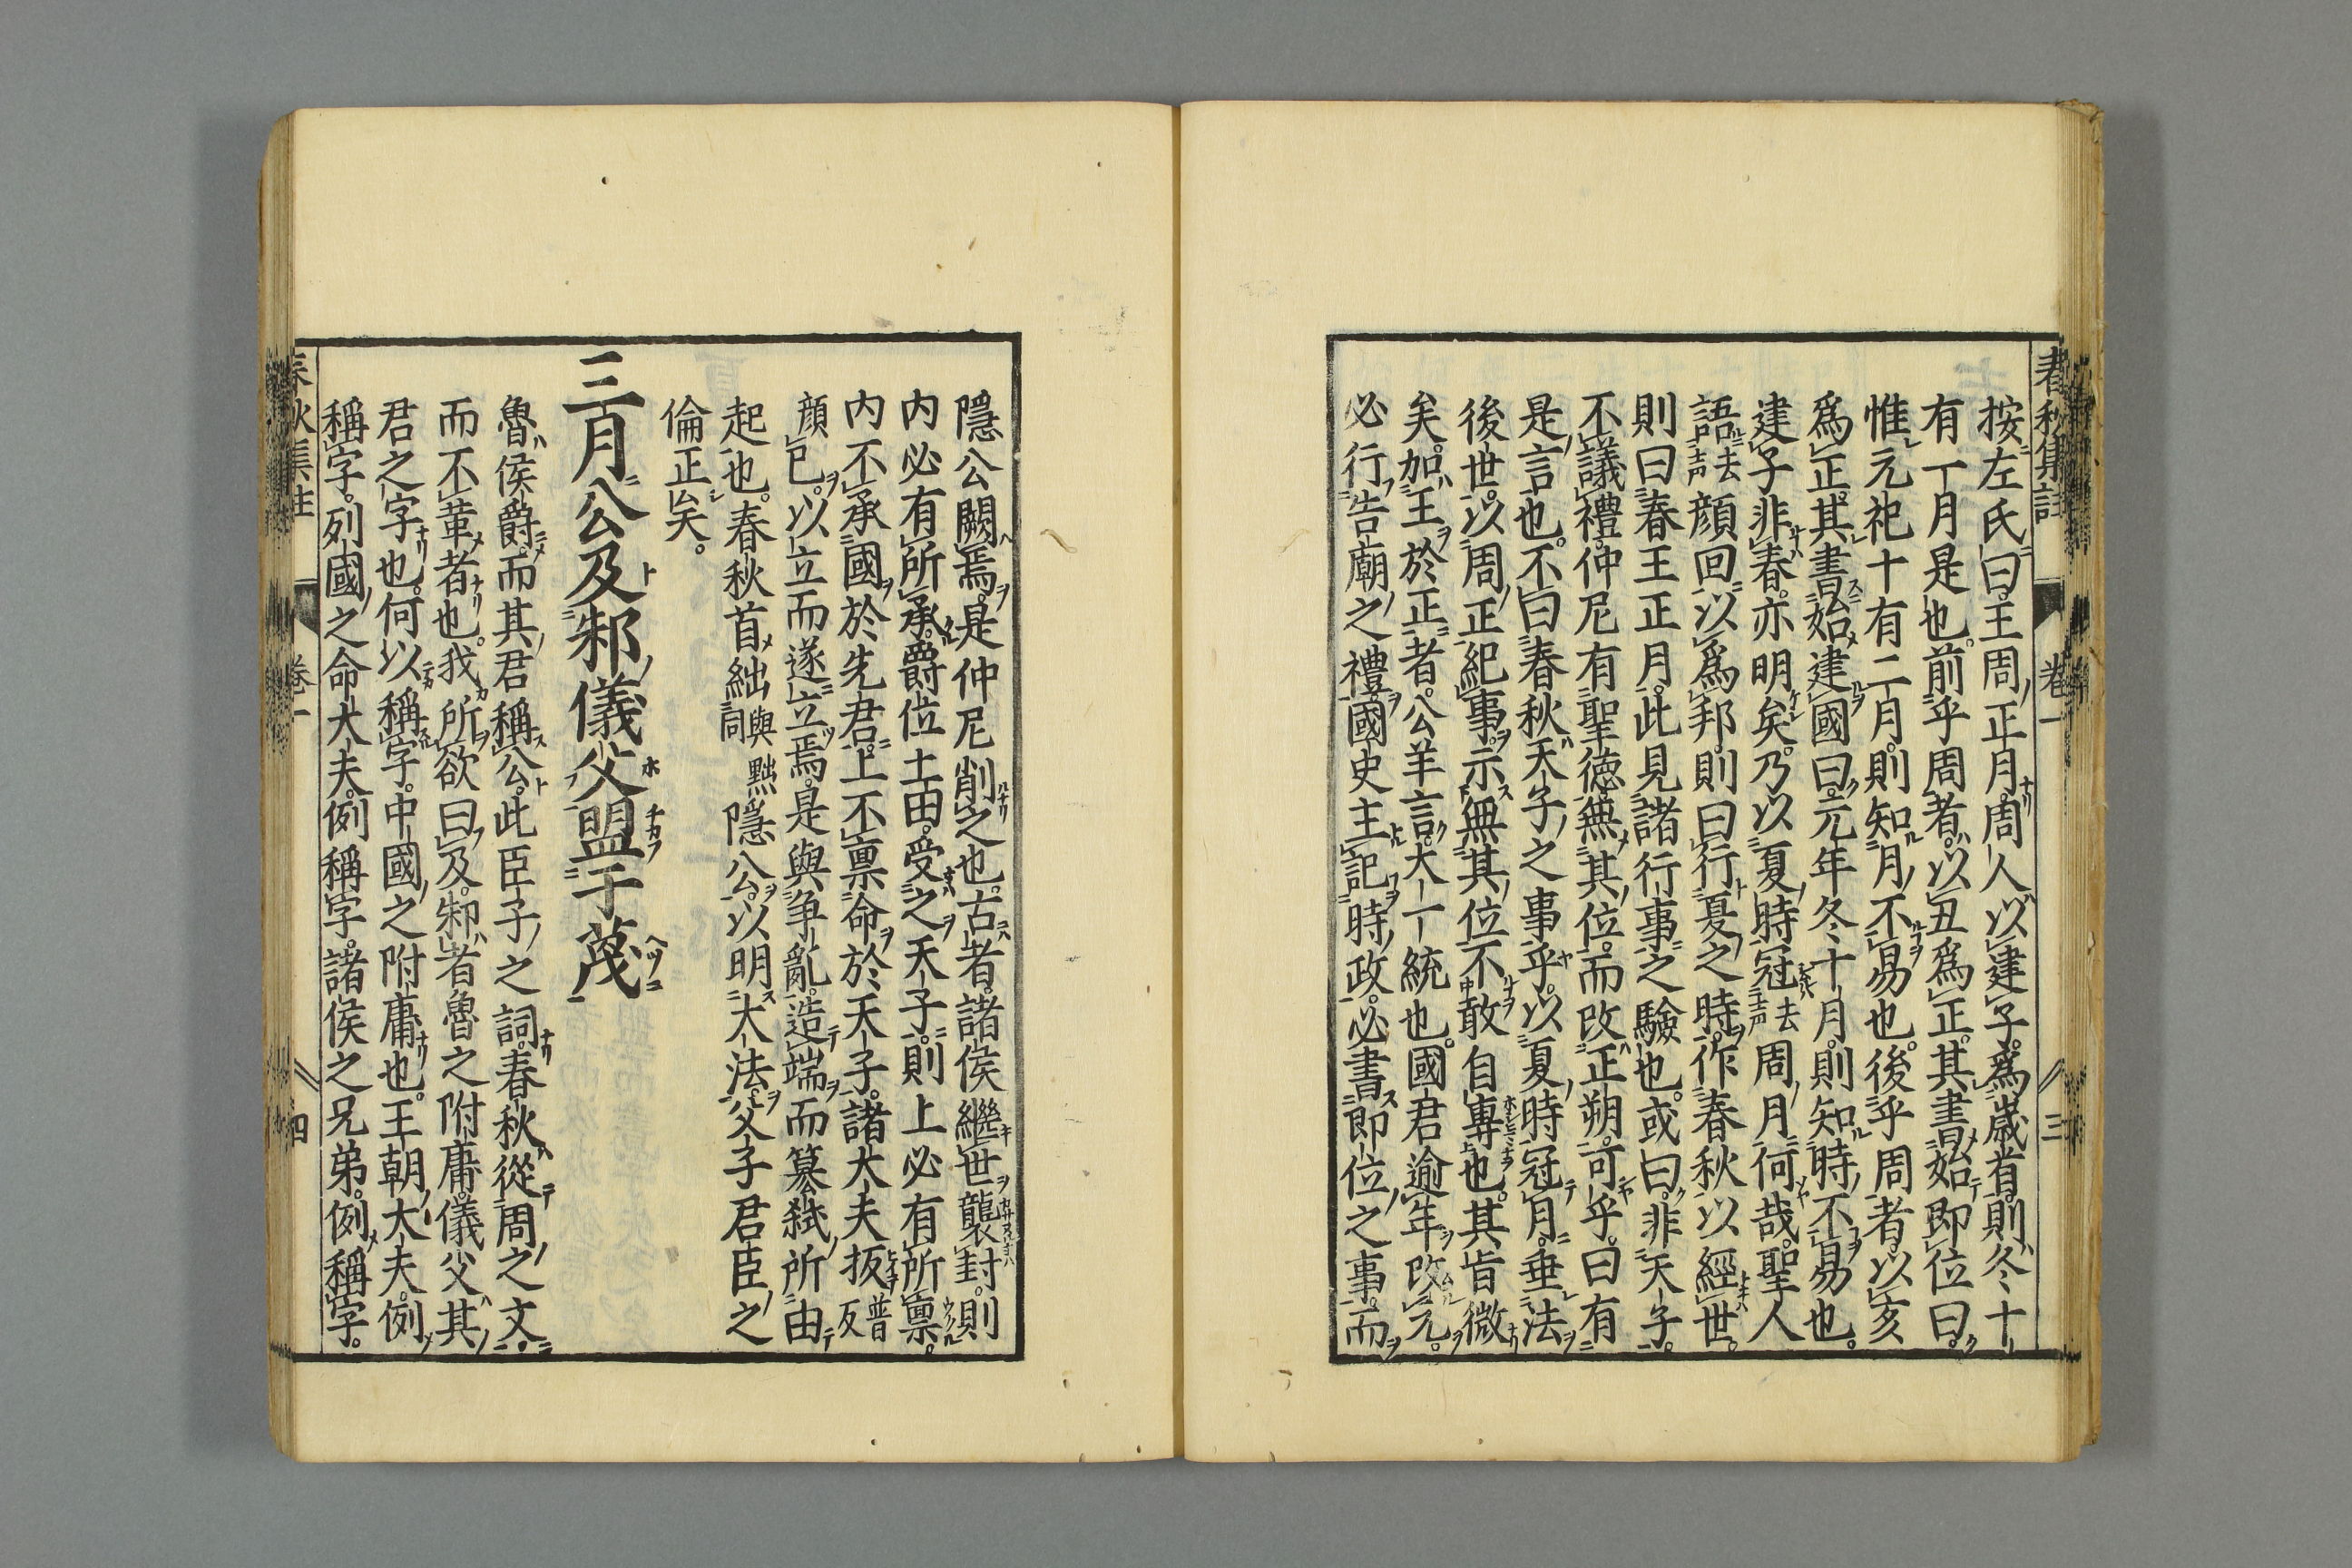 春秋集註 卷一 三
按左氏曰王周正月周人以建子爲歲首則冬十
有一月是也前乎周者以丑爲正其書始即位曰
惟元祀十有二月則知月不易也後乎周者以亥
爲正其書始建國曰元年冬十月則知時不易也
建子非春亦明矣乃以夏時冠去聲周月何哉聖人
語去聲顔回以爲邦則曰行夏之時作春秋以經世
則曰春王正月此見諸行事之驗也或曰非天子
不議禮仲尼有聖德無其位而改正朔可乎曰有
是言也不曰春秋天子之事乎以夏時冠月垂法
後世以周正紀事示無其位不敢自專也其旨微
矣加王於正者公羊言大一統也國君逾年改元
必行告廟之禮國史主記時政必書即位之事而
隱公闕焉是仲尼削之也古者諸侯繼世襲封則
内必有所承爵位土田受之天子則上必有所禀
内不承國於先君上不禀命於天子諸大夫扳普反
顔已以立而遂立焉是與爭亂造端而篡弑所由
起也春秋首絀與黜同隱公以明大法父子君臣之
倫正矣
三月公及邾儀父盟于蔑
魯侯爵而其君稱公此臣子之詞春秋從周之文
而不革者也我所欲曰及邾者魯之附庸儀父其
君之字也何以稱字中國之附庸也王朝大夫例
稱字列國之命大夫例稱字諸侯之兄弟例稱字
春秋集註 卷一 四